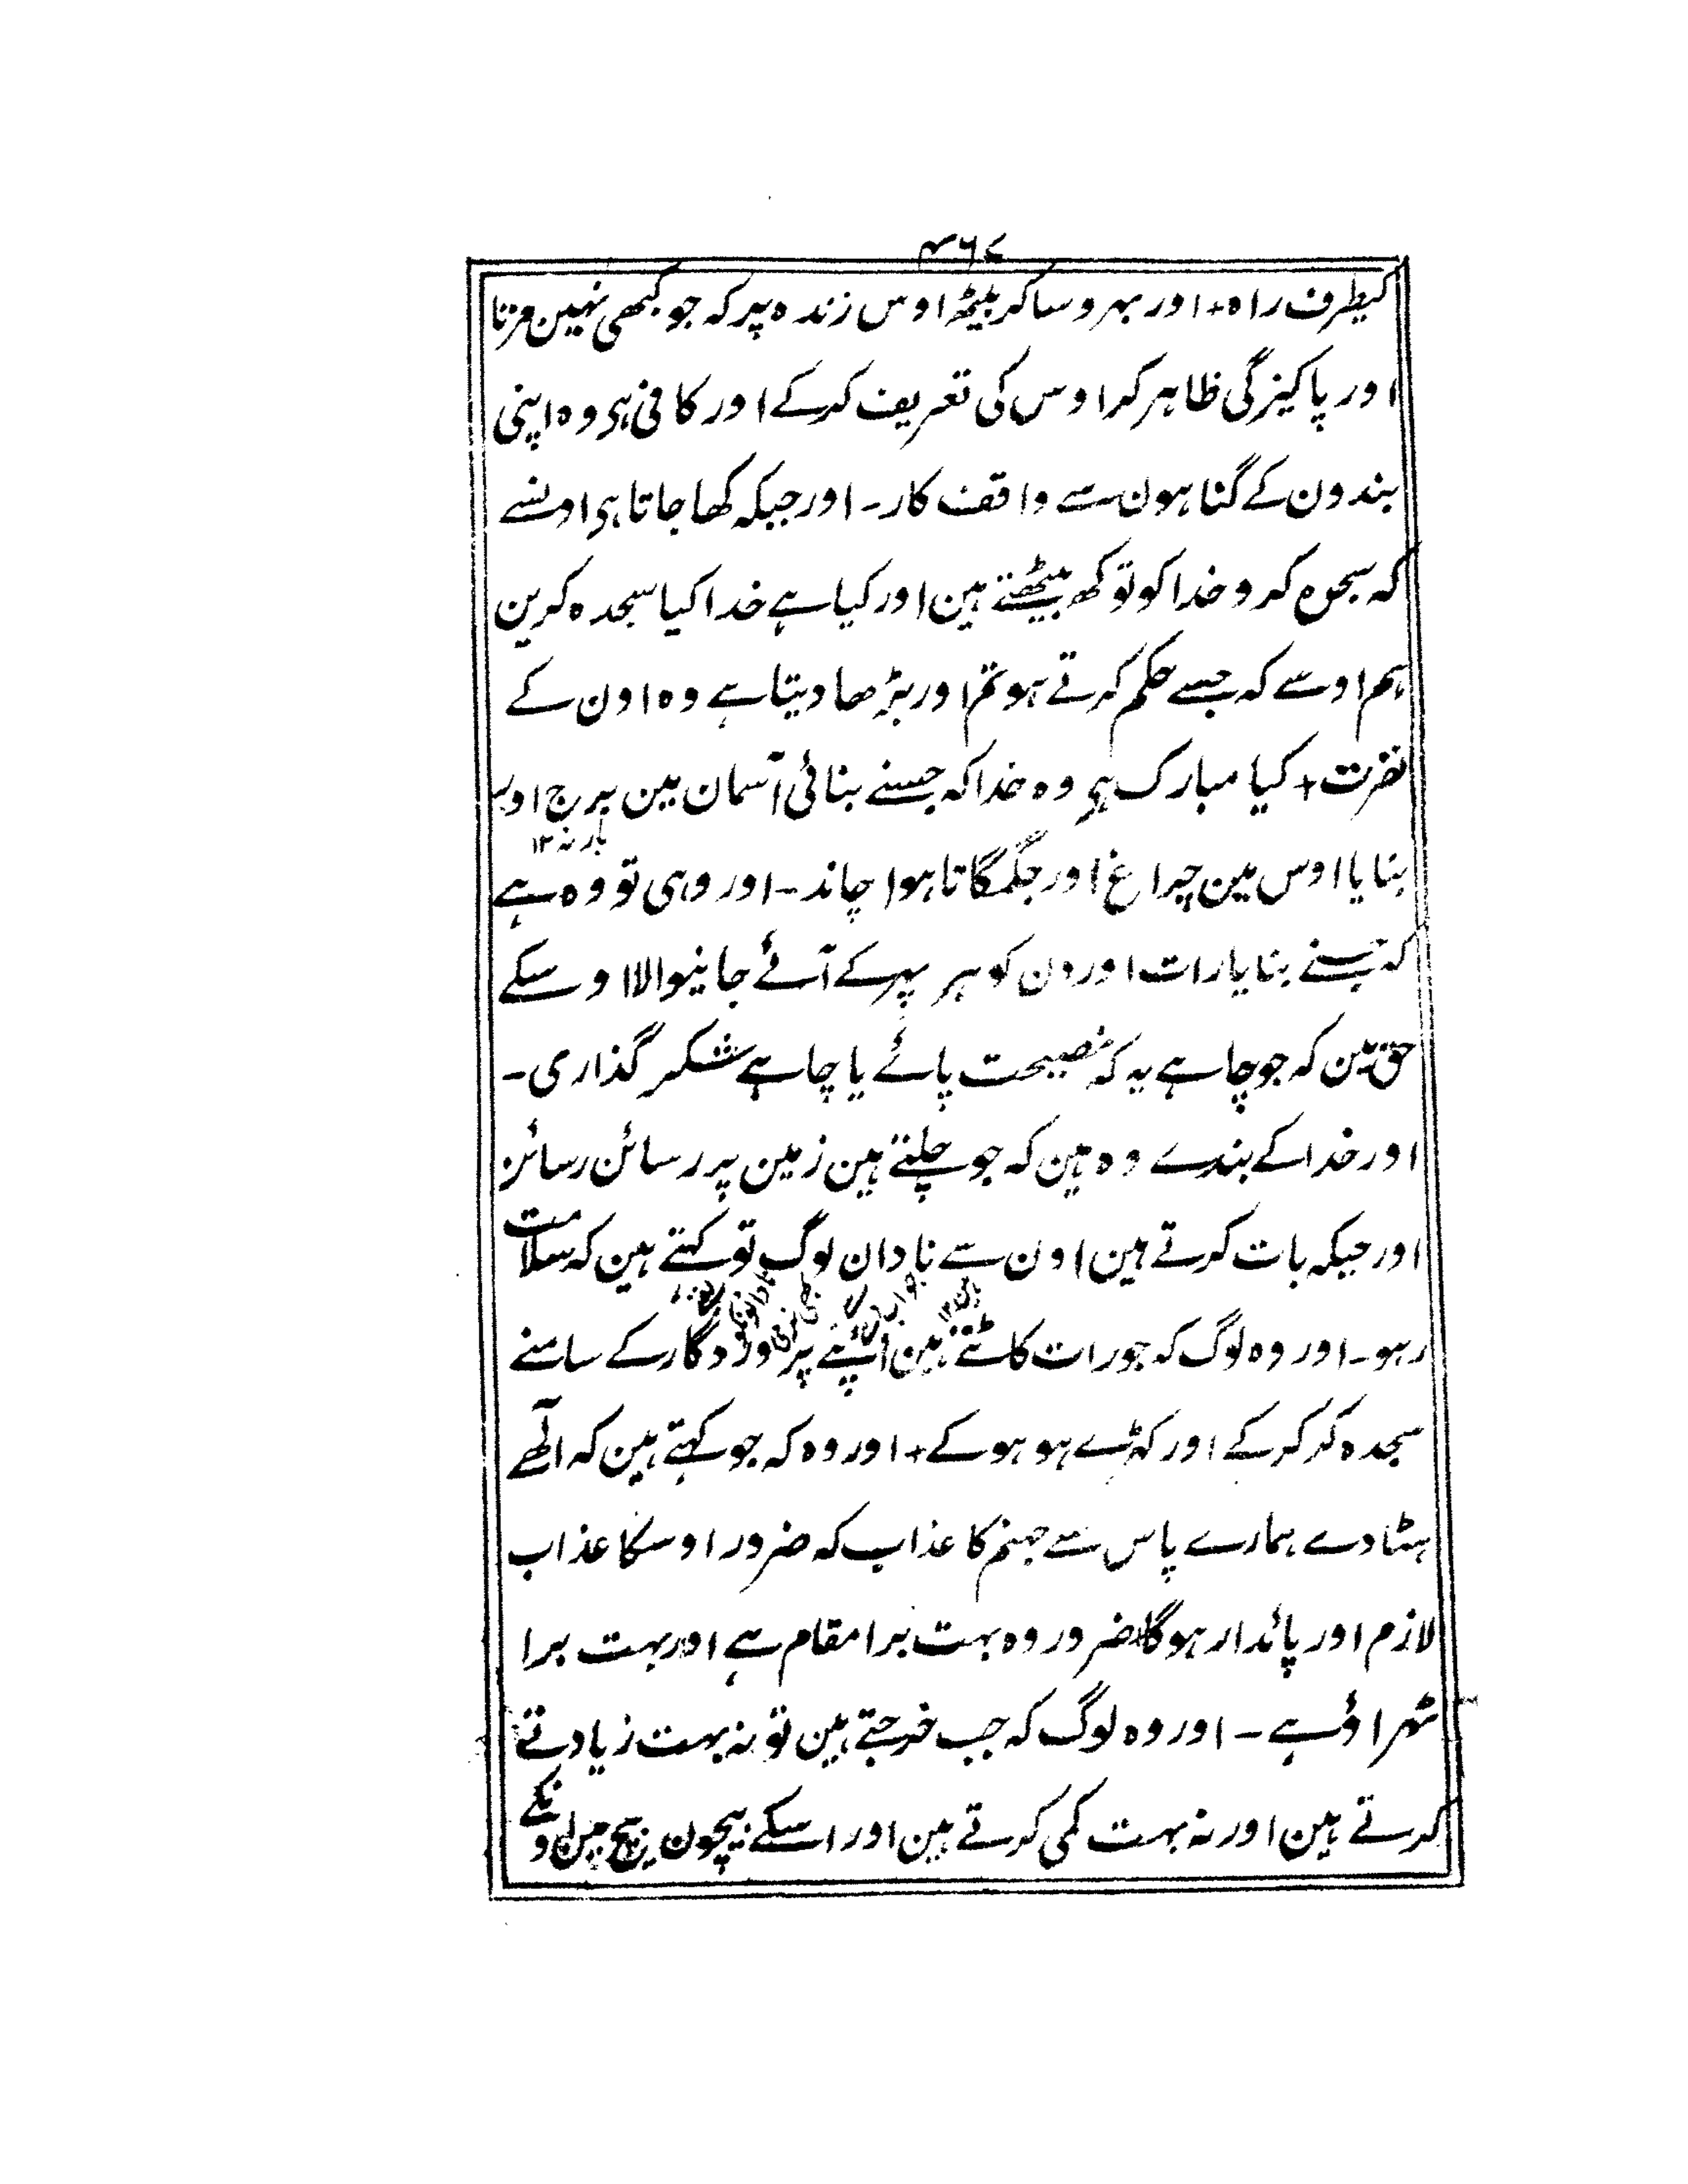 ۴۶۷
کیطرف راہ + اور بہروسا کر بیٹھ اوس زندہ پر کہ جو کبھی نہین مرتا
اور پاکیزگی ظاہر کر اوس کی تعریف کرکے اور کافی ہی وہ اپنی
بندون کے گناہون سے واقف کار ۔ اور جبکہ کھا جاتا ہی اونسے
کہ سجدہ کرو خدا کو تو کھ بیٹھتے ہین اور کیا ہے خدا کیا سجدہ کرین
ہم اوسے کہ جسے حکم کرتے ہو تم اور بڑھا دیتا ہے وہ اون کے
نفرت + کیا مبارک ہی وہ خدا کہ جسنے بنائی آسمان مین برج اور
بارنہ ۱۲
بنایا اوس مین چراغ اور جگمگاتا ہوا چاند ۔ اور وہی تو وہ ہے
کہ جسنے بنایا رات اور دن کو ہر پہر کے آنے جانیوالا اوسکے
حق مین کہ جو چاہے یہ کہ نصیحت پائے یا چاہے شکر گذاری ۔
اور خدا کے بندے وہ ہین کہ جو چلتے ہین زمین پر رسائن رسائن
اور جبکہ بات کرتے ہین اون سے نادان لوگ تو کہتے ہین کہ سلامت
رہو ۔ اور وہ لوگ کہ جو رات کاٹتے ہین اپنے پروردگار کے سامنے
سجدہ کر کرکے اور کہڑے ہو ہو کے + اور وہ کہ جو کہتے ہین کہ الٰہے
ہٹا دے ہمارے پاس سے جہنم کا عذاب کہ ضرور اوسکا عذاب
لازم اور پائدار ہوگا ضرور وہ بہت برا مقام ہے اور بہت برا
ٹہراؤ ہے ۔ اور وہ لوگ کہ جب خرچتے ہین تو نہ بہت زیادتے
کرتے ہین اور نہ بہت کمی کرتے ہین اور اسکے بیچون بیچ مین اونکے